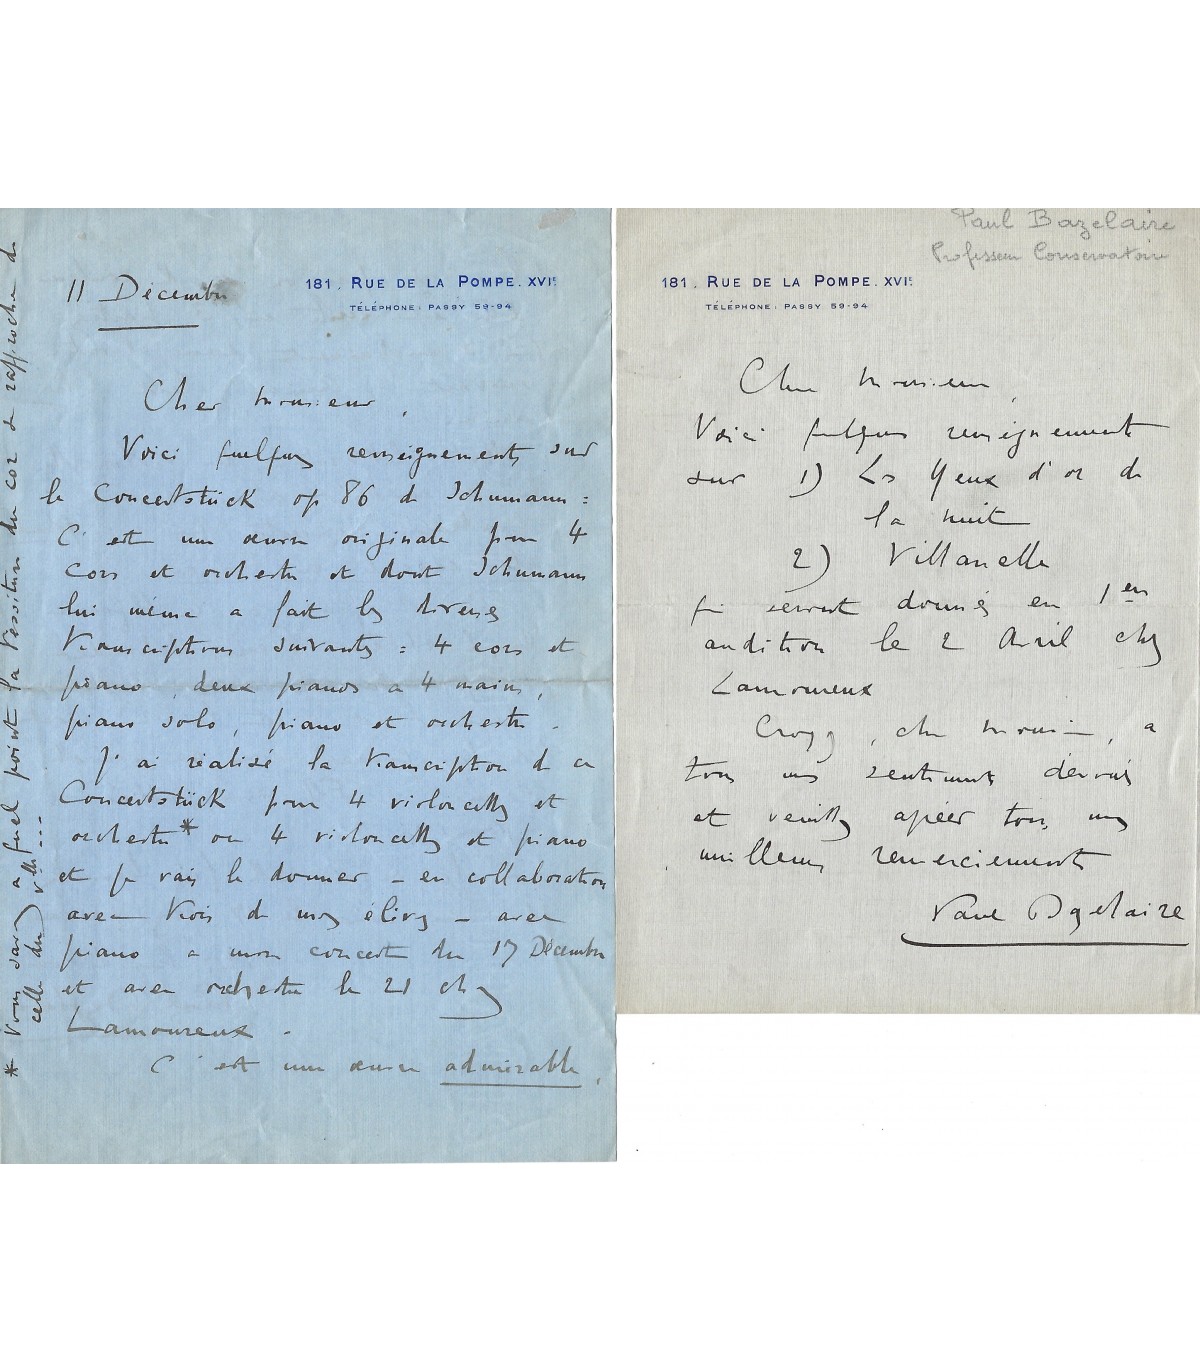 11 Décembre
181. RUE DE LA POMPE. XVIE
TÉLÉPHONE: PASSY 59-94
Cher Monsieur,
Voici quelques renseignements sur
le Concertstück op 86 de Schumann :
C'est une œuvre originale pour 4
cors et orchestre et dont Schumann
lui même a fait les diverses
transcriptions suivantes : 4 cors et
piano, deux pianos a 4 mains,
piano solo, piano et orchestre.
J'ai réalisé la transcription de ce
Concertstück pour 4 violoncelles et
orchestre* ou 4 violoncelles et piano
et je vais le donner - en collaboration
avec trois de mes élèves - avec
piano a mon concert du 17 Décembre
et avec orchestre le 21 chez
Lamoureux.
C'est une œuvre admirable,
* Vous savez a quel point la tessiture du cor se rapproche de
celle du vlle...
Paul Bazelaire
Professeur Conservatoire
181. RUE DE LA POMPE. XVIE
TÉLÉPHONE: PASSY 59-94
Cher Monsieur,
Voici quelques renseignements
sur 1) Les Yeux d'or de
la nuit
2) Villanelle
qui seront donnés en 1ère
audition le 2 Avril chez
Lamoureux
Croyez, cher Monsieur, a
tous mes sentiments dévoués
et veuillez agréer tous mes
meilleurs remerciements
Paul Bazelaire